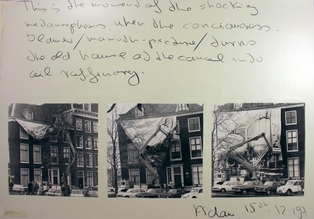 This is the moment of the shocking
metamorphosis when the conciousness-
/ mamuth-picture / turns
the old house at the canal into
oil raffinary.
A'dam 15th - 12 - 197